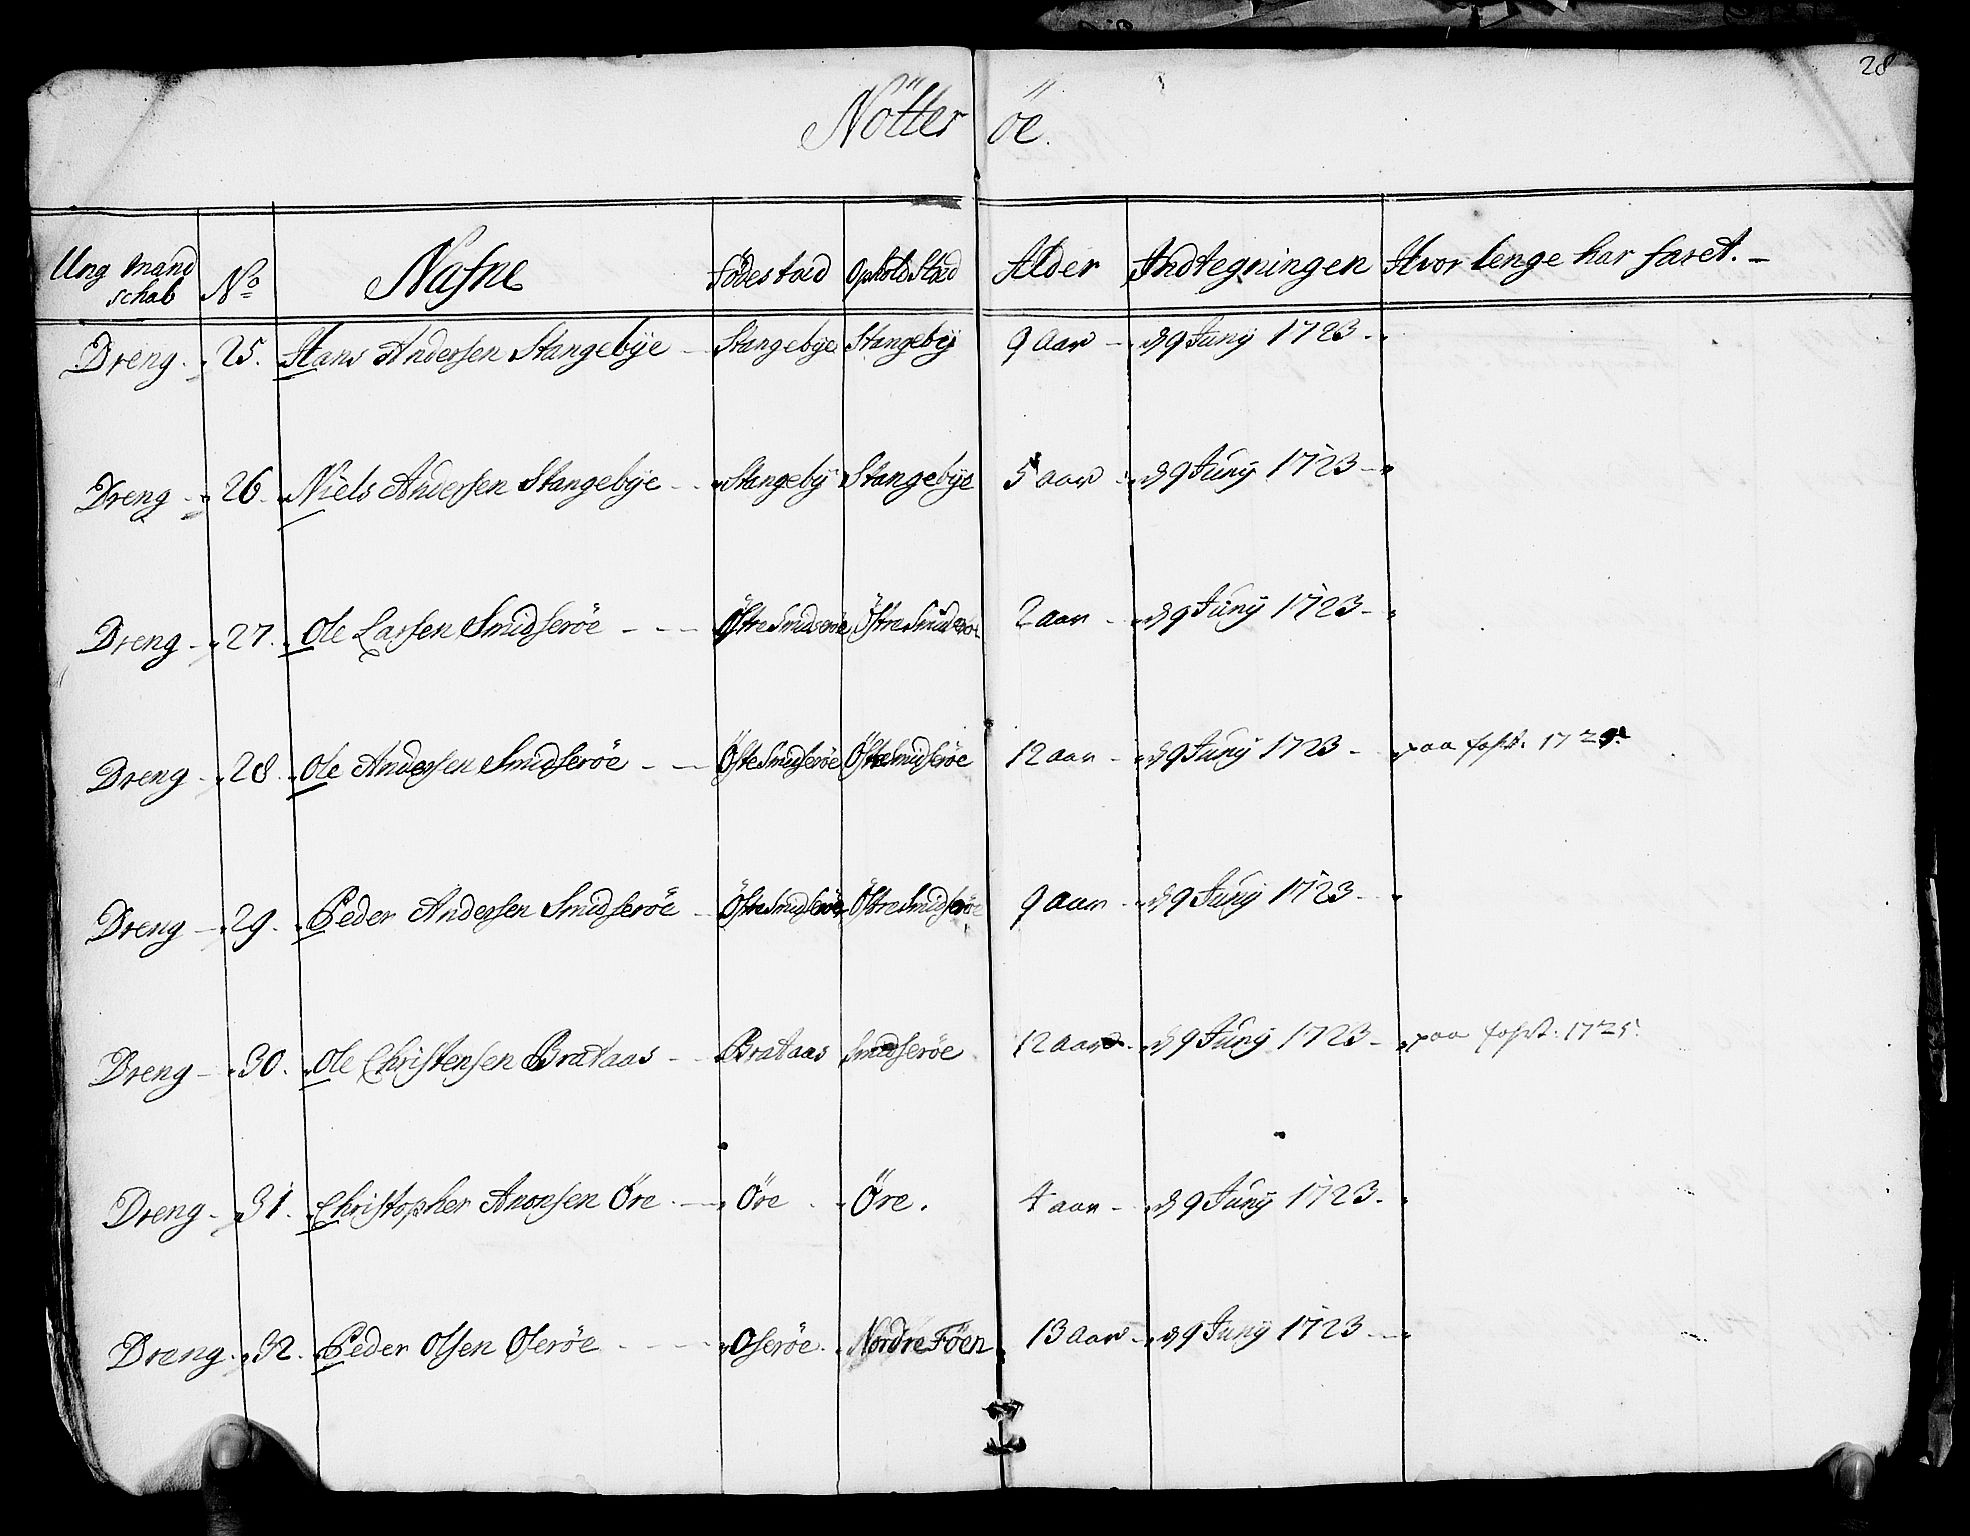 28
Nötter öe.
Ung mand schab No Nafne Födestæd Ophold Stæd Alder Indtegningen Hvor lenge har faret. -
Dreng. 25. Hans Andersen Stangebÿe Stangebÿe Stangebÿ 9 aar d 9 Junÿ 1723
Dreng 26 Niels Andersen Stangebÿe Stangebÿ Stangebÿe 5 aar d 9 Junÿ 1723
Dreng 27. Ole Larsen Smidseröe Östre Smidseröe Östre Smidseröe 2 aar d 9 Junÿ 1723
Dreng 28 Ole Andersen Smidseröe Östre Smidseröe Östre Smidseröe 12 aar d 9 Junÿ 1723 paa
Dreng 29. Peder Andersen Smidseröe Östre Smidseröe Östre Smidseröe 9 aar d 9 Junÿ 1723
Dreng 30. Ole Christensen Brataas Brataas Smidseröe 12 aar d 9 Junÿ 1723 paa 1725
Dreng 31. Christopher Anonsen Öre Öre Öre. 4 aar d 9 Junÿ 1723.
Dreng 32. Peder Olsen Oseröe Oseröe. Nordre Föen 13 aar d 9 Junÿ 1723